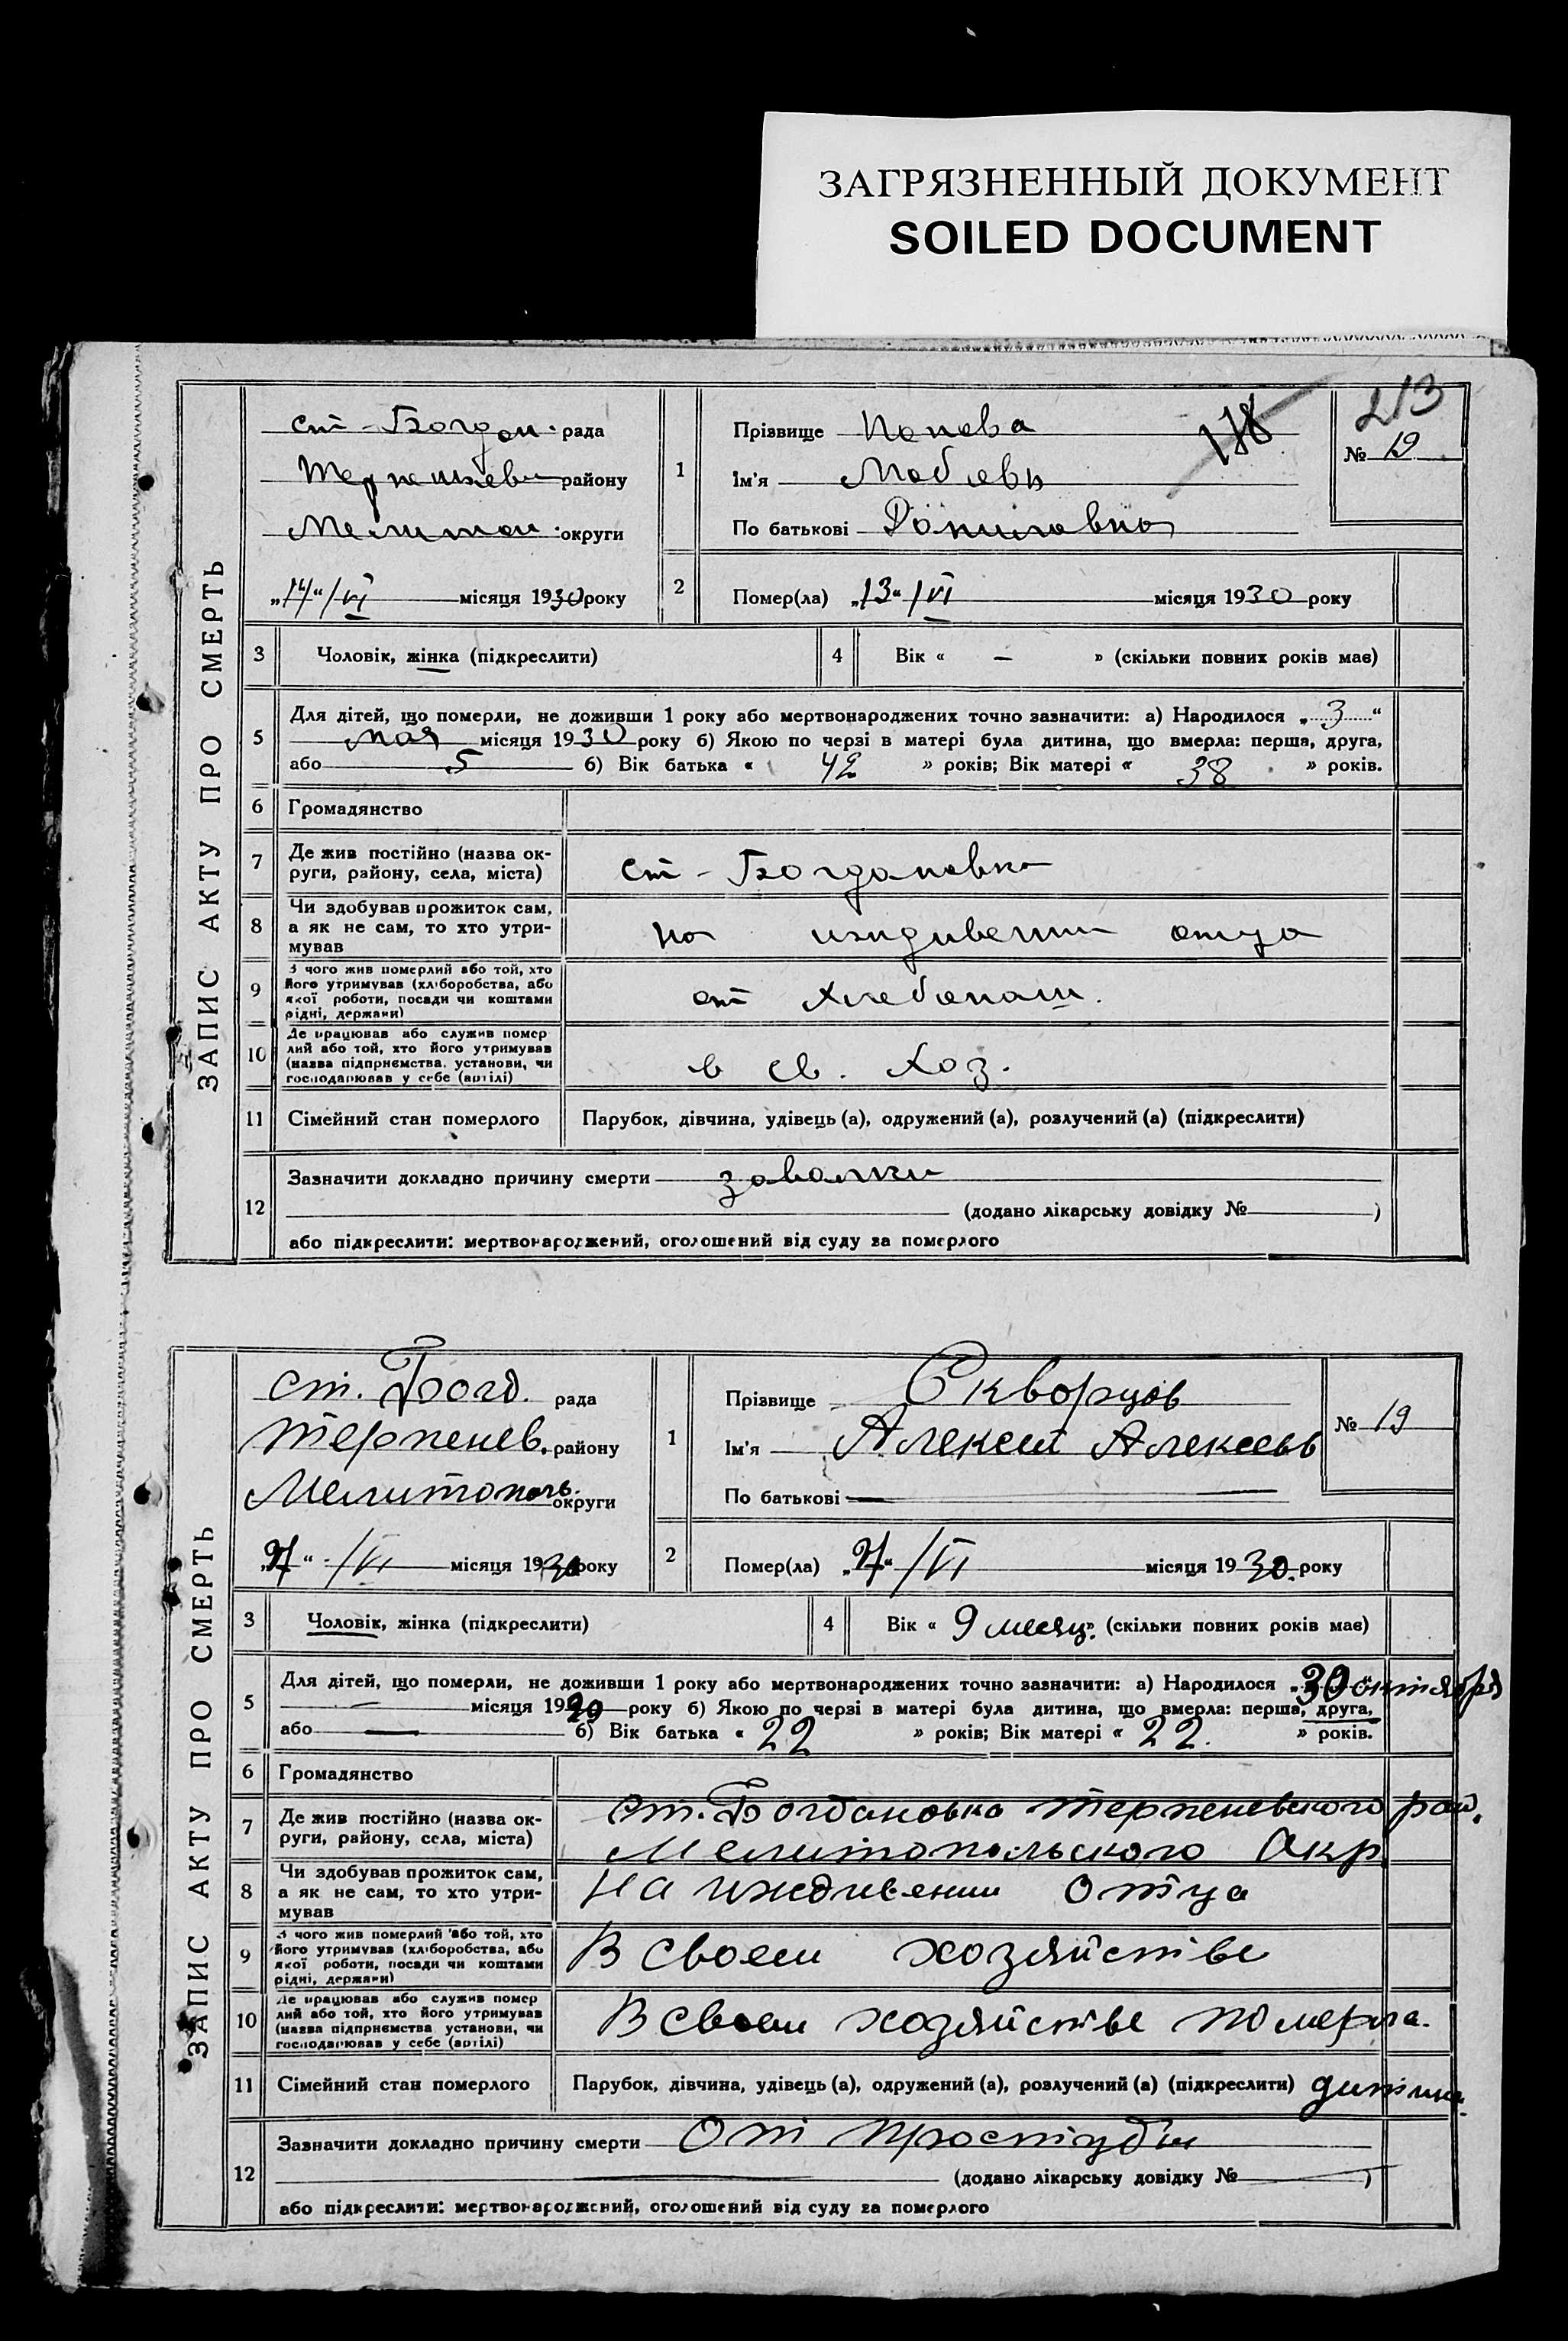 ЗАГРЯЗНЕННЫЙ ДОКУМЕНТ
SOILED DOCUMENT
213
178
ЗАПИС АКТУ ПРО СМЕРТЬ
ст-Богдан. рада
района
Мелитоп. округи
„14“/VI місяця 1930 року
1
Прізвище Попова
Ім'я
По батькові Даниловна
№ 19
2
Помер(ла) „13“/VI місяця 1930 року
3 Чоловік, жінка (підкреслити)
4 Вік « — » (скільки повних років має)
5 Для дітей, що померли, не доживши 1 року або мертвонароджених точно зазначити: а) Народилося „3“
мая місяця 1930 року б) Якою по черзі в матері була дитина, що вмерла: перша, друга,
або 5 б) Вік батька « 42 » років; Вік матері « 38 » років.
6 Громадянство
7 Де жив постійно (назва округи, району, села, міста)
ст-Богдановка
8 Чи здобував прожиток сам, а як не сам, то хто утримував
на иждивении отца
9 З чого жив померлий або той, хто його утримував (хліборобства, або якої роботи, посади чи коштами рідні, держави)
от хлебопаш.
10 Де працював або служив помер лий або той, хто його утримував (назва підприємства, установи, чи господарював у себе (артілі)
в св. хоз.
11 Сімейний стан померлого Парубок, дівчина, удівець (а), одружений (а), розлучений (а) (підкреслити)
12 Зазначити докладно причину смерти
(додано лікарську довідку № )
або підкреслити: мертвонароджений, оголошений від суду за померлого
ЗАПИС АКТУ ПРО СМЕРТЬ
ст. Богд. рада
Терпенев. району
Мелитополь. округи
/VI місяця 1930 року
1
Прізвище Скворцов
Ім'я Алексей Алексеев
По батькові —
№ 19
2
Помер(ла) /VI місяця 1930. року
3 Чоловік, жінка (підкреслити)
4 Вік « 9 месяц. » (скільки повних років має)
5 Для дітей, що померли, не доживши 1 року або мертвонароджених точно зазначити: а) Народилося „30“ октября
— місяця 19 року б) Якою по черзі в матері була дитина, що вмерла: перша, друга,
або — б) Вік батька « 22 » років; Вік матері « 22. » років.
6 Громадянство
7 Де жив постійно (назва округи, району, села, міста)
ст. Богдановка Терпеневского рай.
Мелитопольского Окр.
8 Чи здобував прожиток сам, а як не сам, то хто утримував
На иждивении Отца
9 З чого жив померлий або той, хто його утримував (хліборобства, або якої роботи, посади чи коштами рідні, держави)
В своем хозяйстве
10 Де працював або служив помер лий або той, хто його утримував (назва підприємства, установи, чи господарював у себе (артілі)
В своем хозяйстве померла.
11 Сімейний стан померлого Парубок, дівчина, удівець (а), одружений (а), розлучений (а) (підкреслити) дитина.
12 Зазначити докладно причину смерти От простуды
(додано лікарську довідку № )
або підкреслити: мертвонароджений, оголошений від суду за померлого